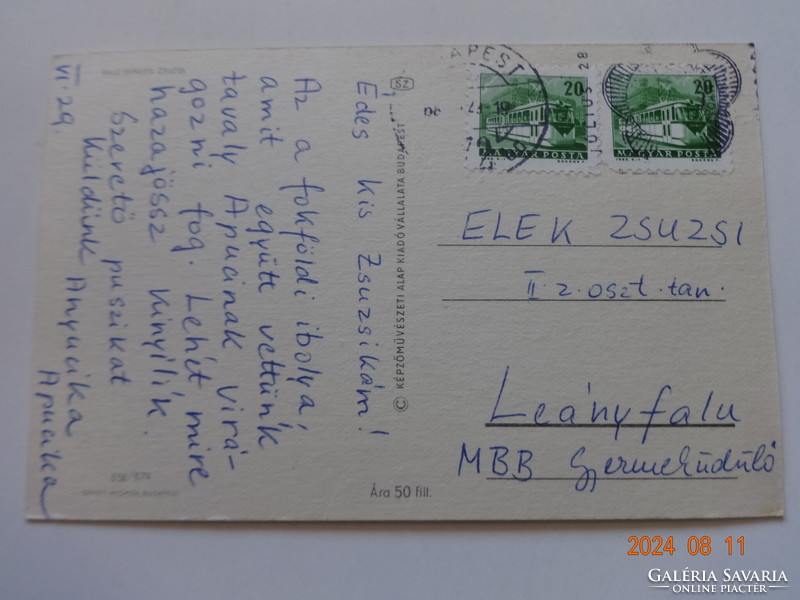 Édes kis Zsuzsikám!
Az a fokföldi ibolya,
amit együtt vettünk
tavaly Apucinak virá-
gozni fog. Lehet, mire
hazajössz kinyílik.
Szerető puszikat
küldünk Anyucika
Apucika
VI. 29.
ELEK ZSUZSI
II. z. oszt. tan.
Leányfalu
MBB Gyermeküdülő
Ára 50 fill.
© KÉPZŐMŰVÉSZETI ALAP KIADÓVÁLLALATA BUDAPEST
SZ
20
MAGYAR POSTA
20
MAGYAR POSTA
JÚLIUS 28
2024 08 11
GALÉRIA SAVARIA
ONLINE PIACTÉR